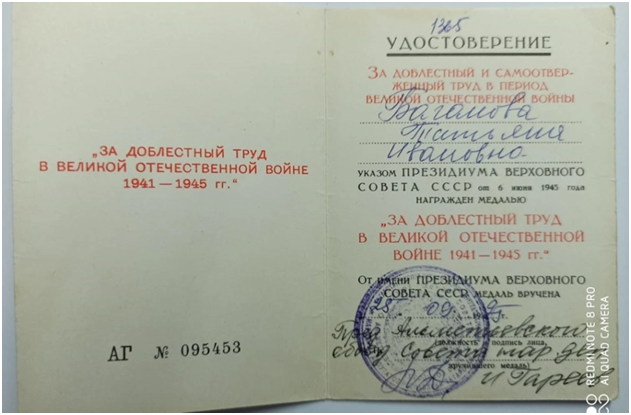 „ЗА ДОБЛЕСТНЫЙ ТРУД
В ВЕЛИКОЙ ОТЕЧЕСТВЕННОЙ ВОЙНЕ
1941—1945 гг.“
АГ № 095453
1365
УДОСТОВЕРЕНИЕ
ЗА ДОБЛЕСТНЫЙ И САМООТВЕР-
ЖЕННЫЙ ТРУД В ПЕРИОД
ВЕЛИКОЙ ОТЕЧЕСТВЕННОЙ ВОЙНЫ
Ваганова
Татьяна
Ивановна
УКАЗОМ ПРЕЗИДИУМА ВЕРХОВНОГО
СОВЕТА СССР от 6 июня 1945 года
НАГРАЖДЕН МЕДАЛЬЮ
„ЗА ДОБЛЕСТНЫЙ ТРУД
В ВЕЛИКОЙ ОТЕЧЕСТВЕННОЙ
ВОЙНЕ 1941—1945 гг.“
От имени ПРЕЗИДИУМА ВЕРХОВНОГО
СОВЕТА СССР МЕДАЛЬ ВРУЧЕНА
г.
Альметьевского
(должность, подпись лица,
Совета
вручившего медаль)
REDMI NOTE 8 PRO
AI QUAD CAMERA